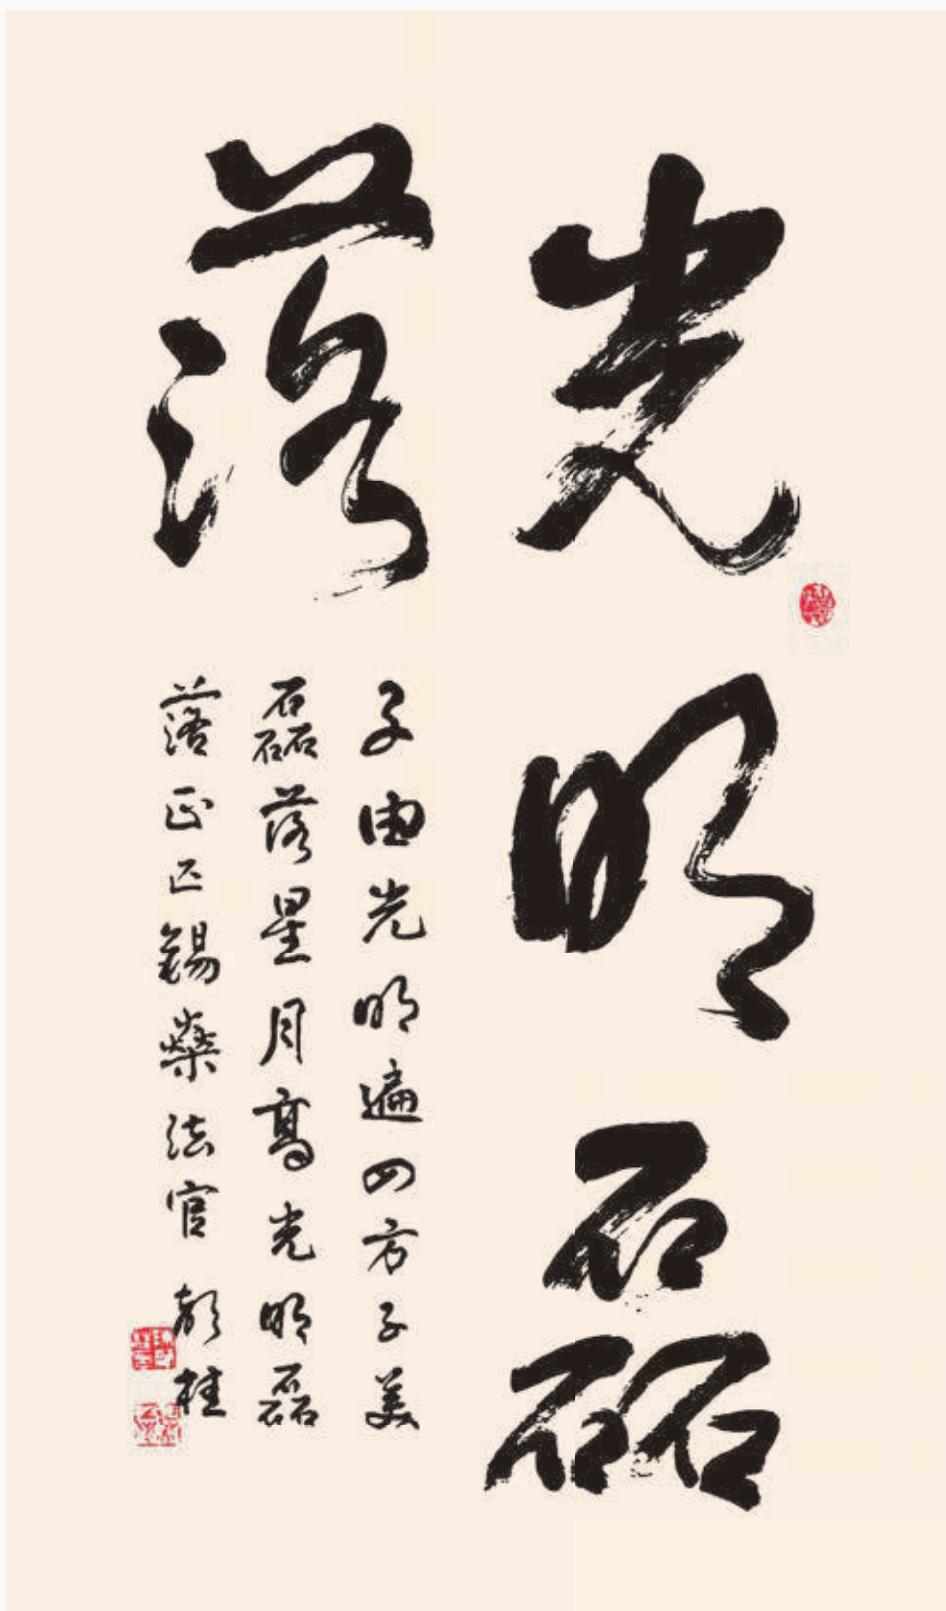 光明磊
落
子由光明遍四方子美
磊落星月高光明磊
落正正錫燊法官